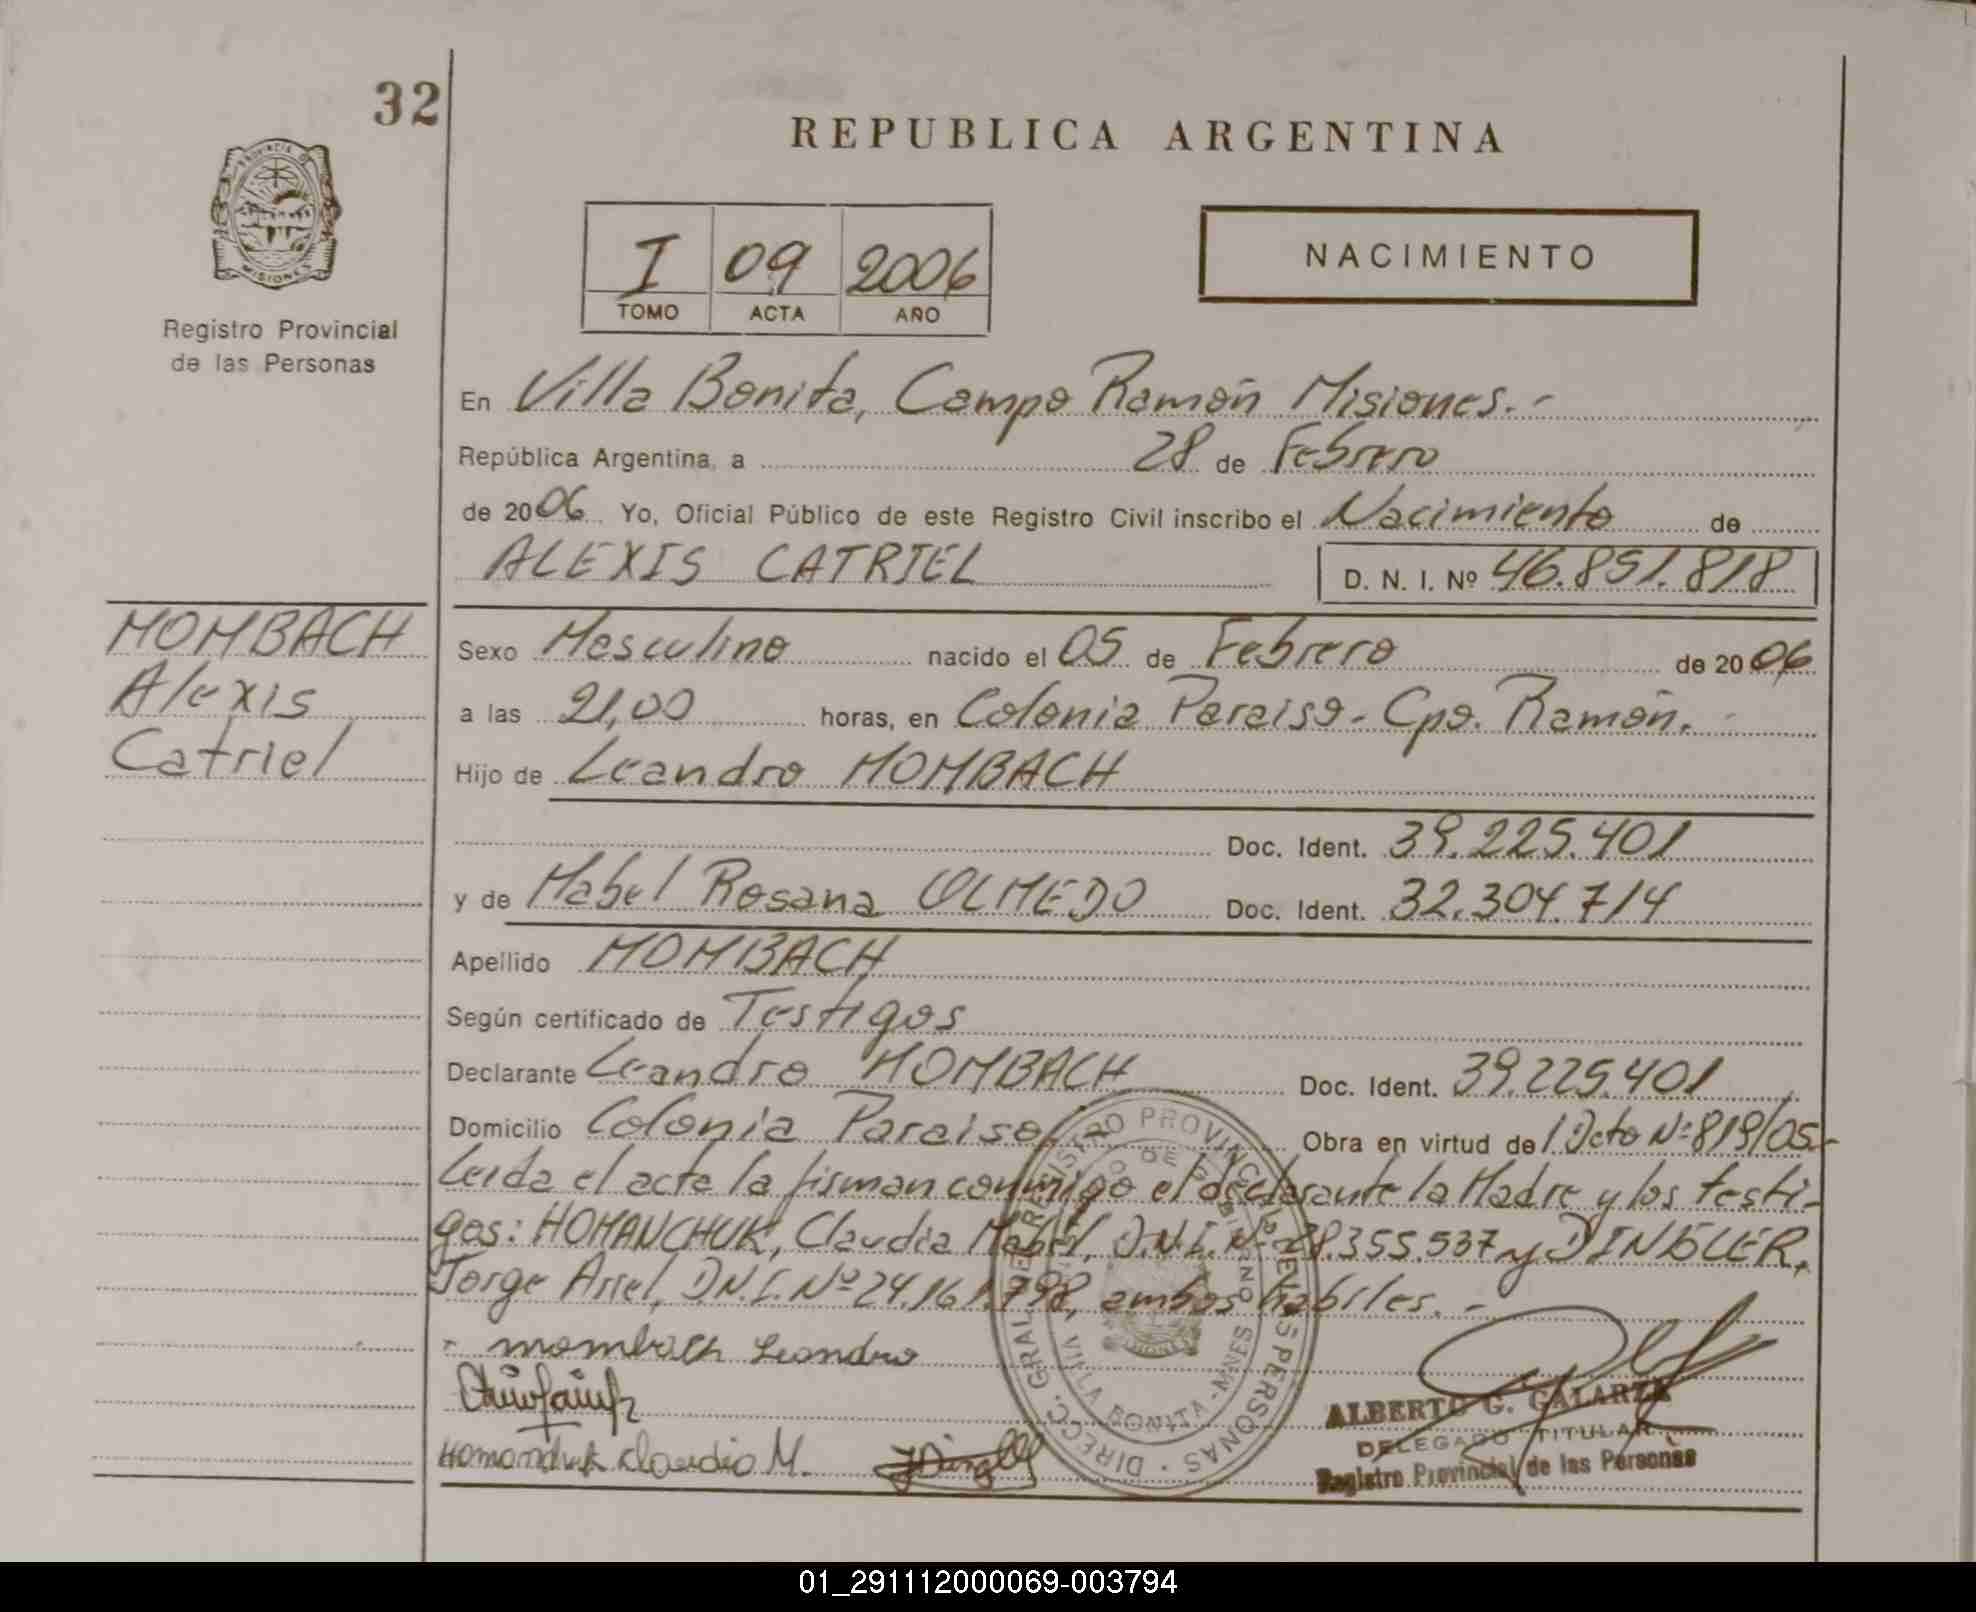 32
REPUBLICA ARGENTINA
PROVINCIA DE
MISIONES
Registro Provincial
de las Personas
I 09 2006
TOMO ACTA AÑO
NACIMIENTO
En Villa Bonita, Campo Ramón Misiones.-
República Argentina, a 28 de Febrero
de 2006 Yo, Oficial Público de este Registro Civil inscribo el Nacimiento de
ALEXIS CATRIEL D. N. I. Nº 46.851.818
MOMBACH
Alexis
Catriel
Sexo Masculino nacido el 05 de Febrero de 2006
a las 21,00 horas, en Colonia Paraiso- Cpo. Ramón.
Hijo de Leandro MOMBACH
Doc. Ident. 39.225.401
y de Mabel Rosana OLMEDO Doc. Ident. 32.304.714
Apellido MOMBACH
Según certificado de Testigos
Declarante Leandro MOMBACH Doc. Ident. 39.225.401
Domicilio Colonia Paraiso Obra en virtud de l Dcto Nº 819/05-
Leida el acta la firman conmigo el declarante la Madre y los testi-
gos: HOMANCHUK, Claudia Mabel, D.N.I. Nº 28.355.537 y DINGLER,
Jorge Ariel, D.N.I. Nº 24.161.798, ambos habiles.-
mombach Leandro
Homanchuk Claudia M.
DIRECC. GRAL. DE REGISTRO PROVINCIAL DE LAS PERSONAS
VILLA BONITA - MNES
ALBERTO G. GALARZA
DELEGADO TITULAR
Registro Provincial de las Personas
01_291112000069-003794